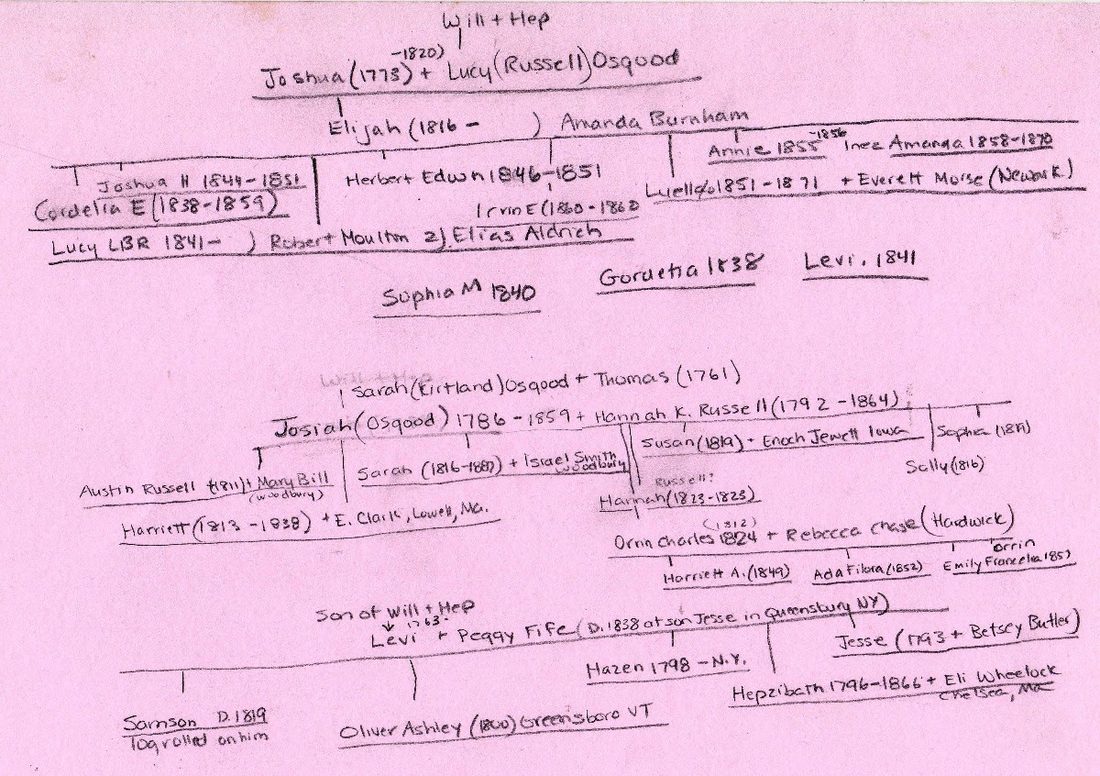 Will + Hep
Joshua (1773 -1820) + Lucy (Russell) Osgood
Elijah (1816 - ) Amanda Burnham
Annie 1855 -1856 Inez Amanda 1858-1870
Joshua H 1844-1851
Herbert Edwn 1846-1851
Luella 1851-1871 + Everett Morse (Newark)
Cordelia E (1838-1859)
Irvin E (1860-1862
Lucy LBR 1841- ) Robert Moulton 2) Elias Aldrich
Sophia M 1840
1838
Levi. 1841
Will + Hep
Sarah (Kirtland) Osgood + Thomas (1761)
Josiah (Osgood) 1786-1859 + Hannah K. Russell (1792-1864)
Austin Russell (1811) + Mary Bill
(Woodbury)
Sarah (1816-1887) + Israel Smith
Woodbury
Susan (1819) + Enoch Jewett Iowa
Sophia
Sally (1816)
Harriett (1813-1838) + E. Clark, Lowell, Ma.
Russell?
Hannah (1823-1823)
(1812)
Orrin Charles 1824 + Rebecca Chase (Hardwick)
Harriett A. (1849)
Ada Filora (1852)
Orrin
Emily Francelia 1857
Son of Will + Hep
Levi 1763- + Peggy Fife (D. 1838 at son Jesse in Queensbury NY)
Jesse (1793 + Betsey Butler)
Hazen 1798 - N.Y.
Hepzibath 1796-1866 + Eli Wheelock
Chelsea, Ma
Samson D. 1819
log rolled on him
Oliver Ashley (1800) Greensboro VT